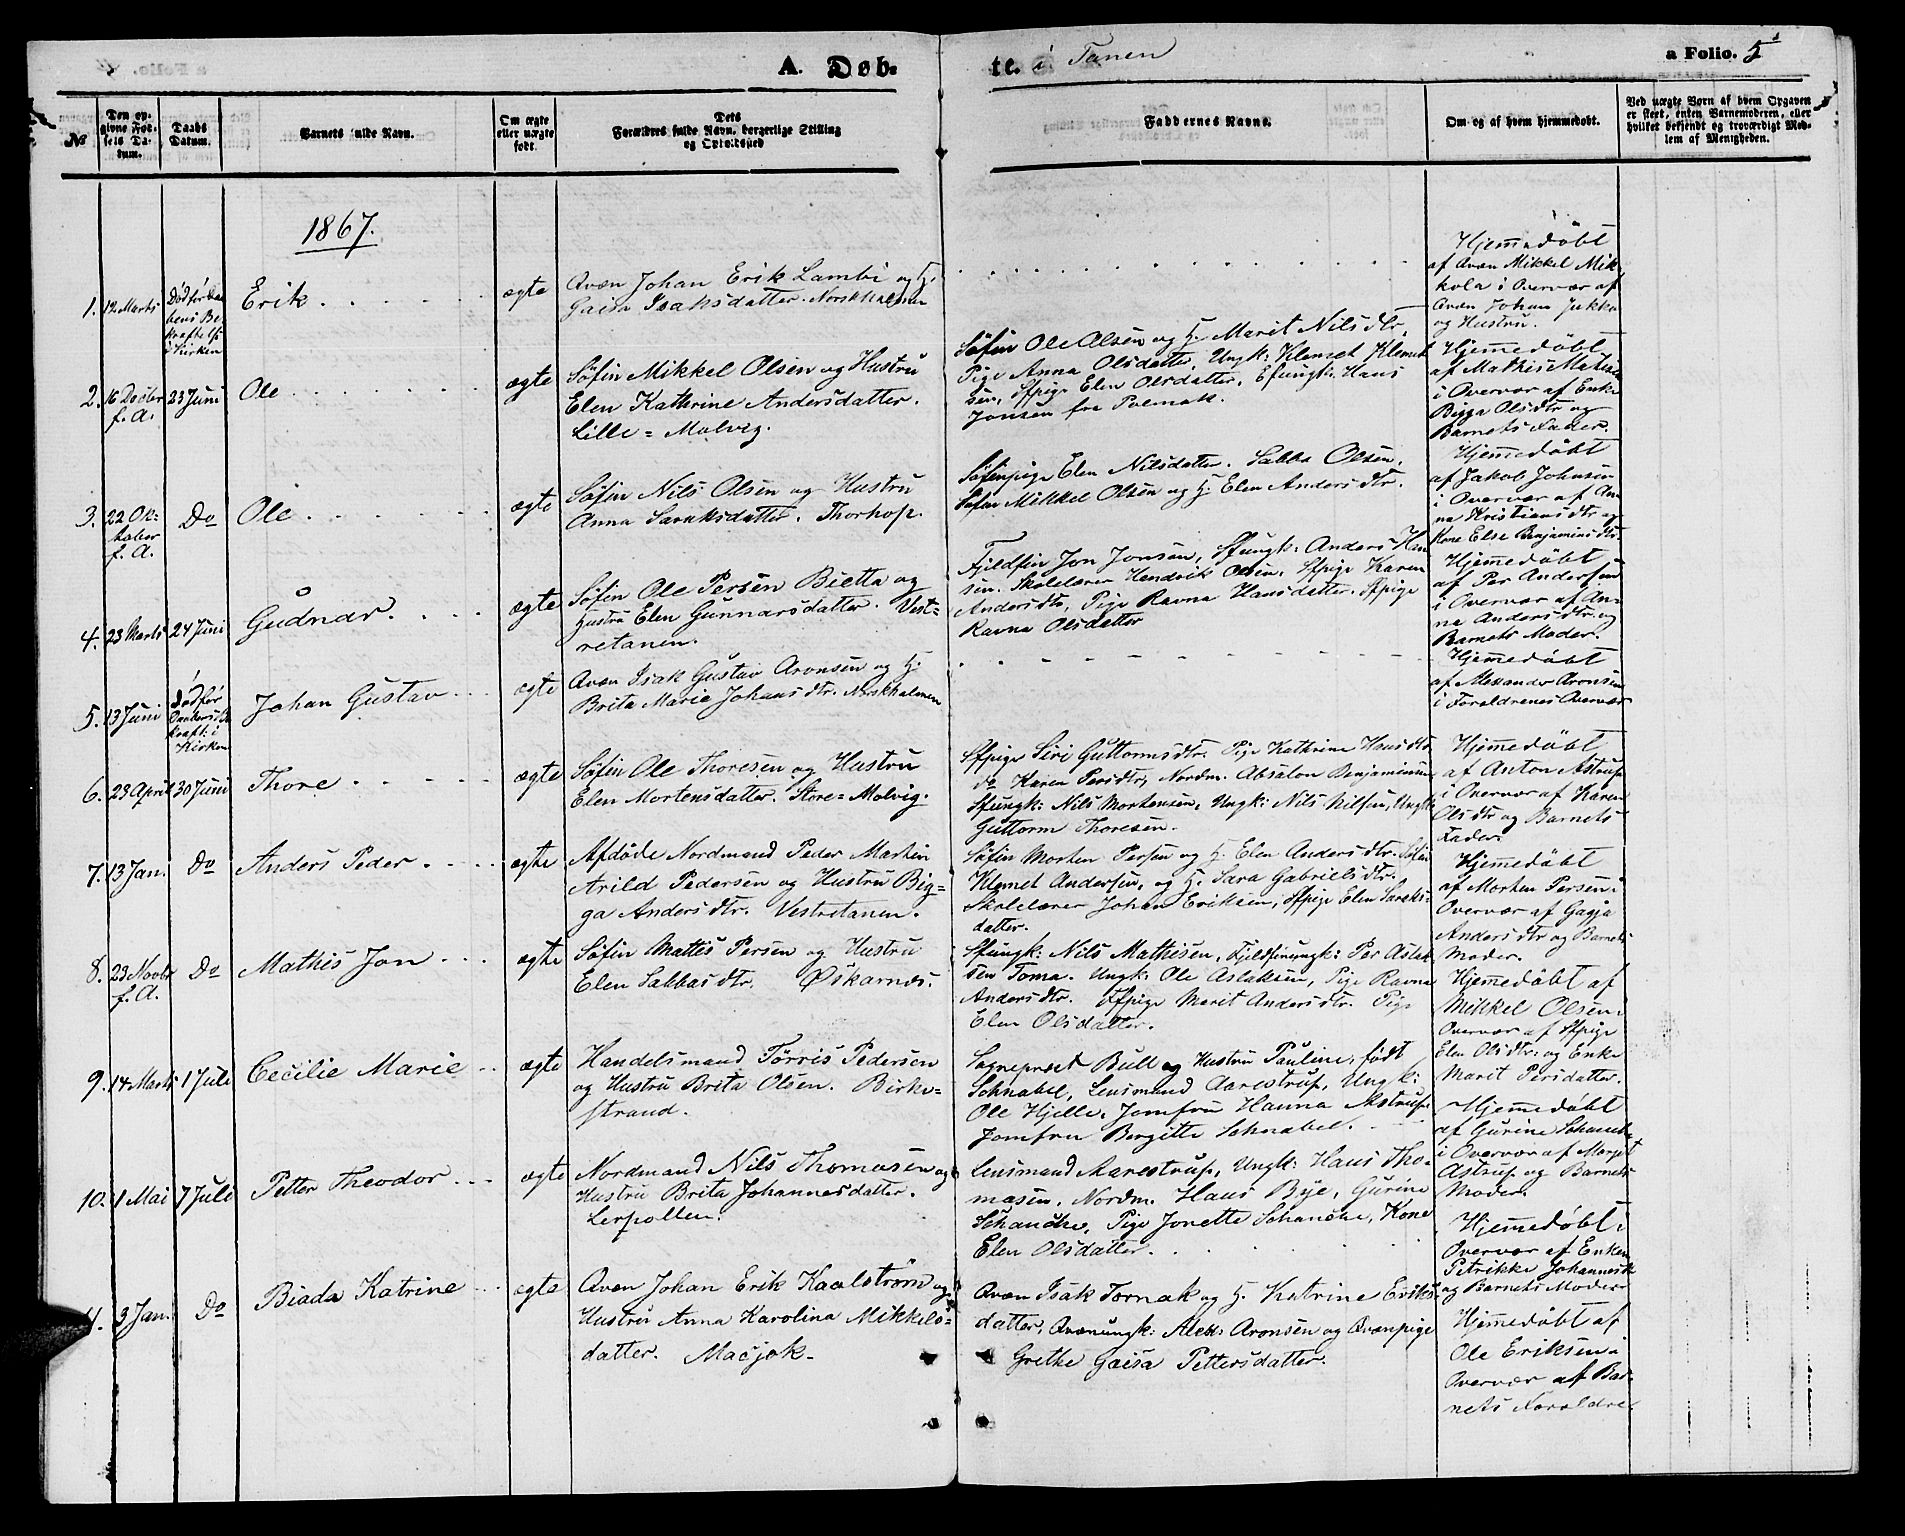 A. Døb-
te. i Tanen
a Folio. 5
No
Den opgivne Fødsels Datum.
Daabs Datum.
Barnets fulde Navn.
Om ægte eller uægte født.
Dets Forældres fulde Navn, borgerlige Stilling og Opholdssted
Faddernes Navne.
Om og af hvem hjemmedøbt.
Ved uægte Børn af hvem Opgaven er skeet, enten Barnemoderen, eller hvilket bekjendt og troværdigt Medlem af Menigheden.
1867.
1. 12 Marts
Død før Daabens Bekræftelse i Kirken
Erik
ægte
Qvæn Johan Erik Lambi og H.
Gaisa Isaksdatter. Norskholmen
Hjemmedøbt
af Qvæn Mikkel Mik-
kola i Overvær af
Qvæn Johan Jukka
og Hustru.
2. 16 Decbr f. A.
23 Juni
Ole
ægte
Søfin Mikkel Olsen og Hustru
Elen Kathrine Andersdatter.
Lille-Molvig.
Søfin Ole Olsen og H. Marit Nilsdtr,
Pige Anna Olsdatter, Ungk: Klemet Klemet
sen, Sfpige Elen Olsdatter, Efungk: Hans
Jonsen fra Polmak.
Hjemmedøbt
af Mathis Mathisen
i Overvær af Enke
Bigga Olsdtr og
Barnets Fader.
3. 22 Ok-
tober
f. A.
Do
Ole
ægte
Søfin Nils Olsen og Hustru
Anna Saraksdatter. Thorhop.
Søfinpige Elen Nilsdatter. Sabba Olsen.
Søfin Mikkel Olsen og H. Elen Andersdtr.
Hjemmedøbt
af Jakob Johnsen
i Overvær af An-
na Kristiansdtr og
Kone Else Benjaminsdtr.
4. 23 Marts
24 Juni
Gudnar
ægte
Søfin Ole Persen Bietta og
Hustru Elen Gunnarsdatter. Vest-
retanen.
Fjeldfin Jon Jonsen, Sfungk: Anders Han
sen. Skolelærer Hendrik Olsen, Sfpige Karen
Andersdtr, Pige Ravna Hansdatter. Sfpige
Ravna Olsdatter
Hjemmedøbt
af Per Andersen
i Overvær af An-
na Andersdtr og
Barnets Moder.
5. 13 Juni
Død før Daabens Bekræft: i Kirken
Johan Gustav
ægte
Qvæn Isak Gustav Aronsen og H.
Brita Marie Johansdtr. Norskholmen
Hjemmedøbt
af Alexander Aronsen
i Forældrenes Overvær
6. 23 April
30 Juni
Thore
ægte
Søfin Ole Thoresen og Hustru
Elen Mortensdatter. Store-Molvig.
Sfpige Siri Guttormsdtr. Pige Kathrine Hansdtr
do Karen Persdtr, Nordm. Absalon Benjaminsen
Sfungk: Nils Mortensen, Ungk: Nils Nilsen, Ungk
Guttorm Thoresen.
Hjemmedøbt
af Anton Astrup
i Overvær af Karen
Olsdtr og Barnets
Fader.
7. 13 Jan.
Do
Anders Peder
ægte
Afdøde Nordmand Peder Martin
Arild Pedersen og Hustru Big-
ga Andersdtr. Vestretanen.
Søfin Morten Persen og H. Elen Andersdtr. Søfin
Klemet Andersen, og H. Sara Gabrielsdtr.
Skolelærer Johan Eriksen, Sfpige Elen Saraks-
datter.
Hjemmedøbt
af Morten Persen i
Overvær af Gagja
Andersdtr og Barnets
Moder.
8. 23 Novbr f. A.
Do
Mathis Jon
ægte
Søfin Mattis Persen og Hustru
Elen Sabbasdtr. Øskarnes.
Sfungk: Nils Mathisen, Fjeldfinungk: Per Aslak
sen Toma. Ungk: Ole Aslaksen, Pige Ravna
Andersdtr. Sfpige Marit Andersdtr. Pige
Elen Olsdatter.
Hjemmedøbt af
Mikkel Olsen i
Overvær af Sfpige
Elen Olsdtr. og Enke
Marit Persdatter.
9. 14 Marts
1 Juli
Cecilie Marie
ægte
Handelsmand Tørris Pedersen
og Hustru Brita Olsen. Birke-
strand.
Sognepræst Bull og Hustru Pauline, født
Schnabel, Lensmand Aarestrup, Ungk:
Ole Hjelle, Jomfru Hanna Astrup.
Jomfru Bergitte Schnabel.
Hjemmedøbt
af Gurine Schanche
i Overvær af Margit
Astrup og Barnets
Moder.
10. 1 Mai
7 Juli
Petter Theodor
ægte
Nordmand Nils Thomasen og
Hustru Brita Johannesdatter.
Lerpollen.
Lensmand Aarestrup, Ungk: Hans Tho-
masen, Nordm. Hans Bye, Gurine
Schanche, Pige Jonette Schanche, Kone
Elen Olsdatter.
Hjemmedøbt i
Overvær af Enken
Petrikke Johannesdtr
og Barnets Moder
11. 3 Jan.
Do
Biada Katrine
ægte
Qvæn Johan Erik Kaalstrøm og
Hustru Anna Karolina Mikkels-
datter. Masjok.
Qvæn Isak Tornak og H. Katrine Eriks-
datter, Qvænungk: Alex: Aronsen og Qvænpige
Grethe Gaisa Pettersdatter.
Hjemmedøbt af
Ole Eriksen i
Overvær af Bar-
nets Forældre.